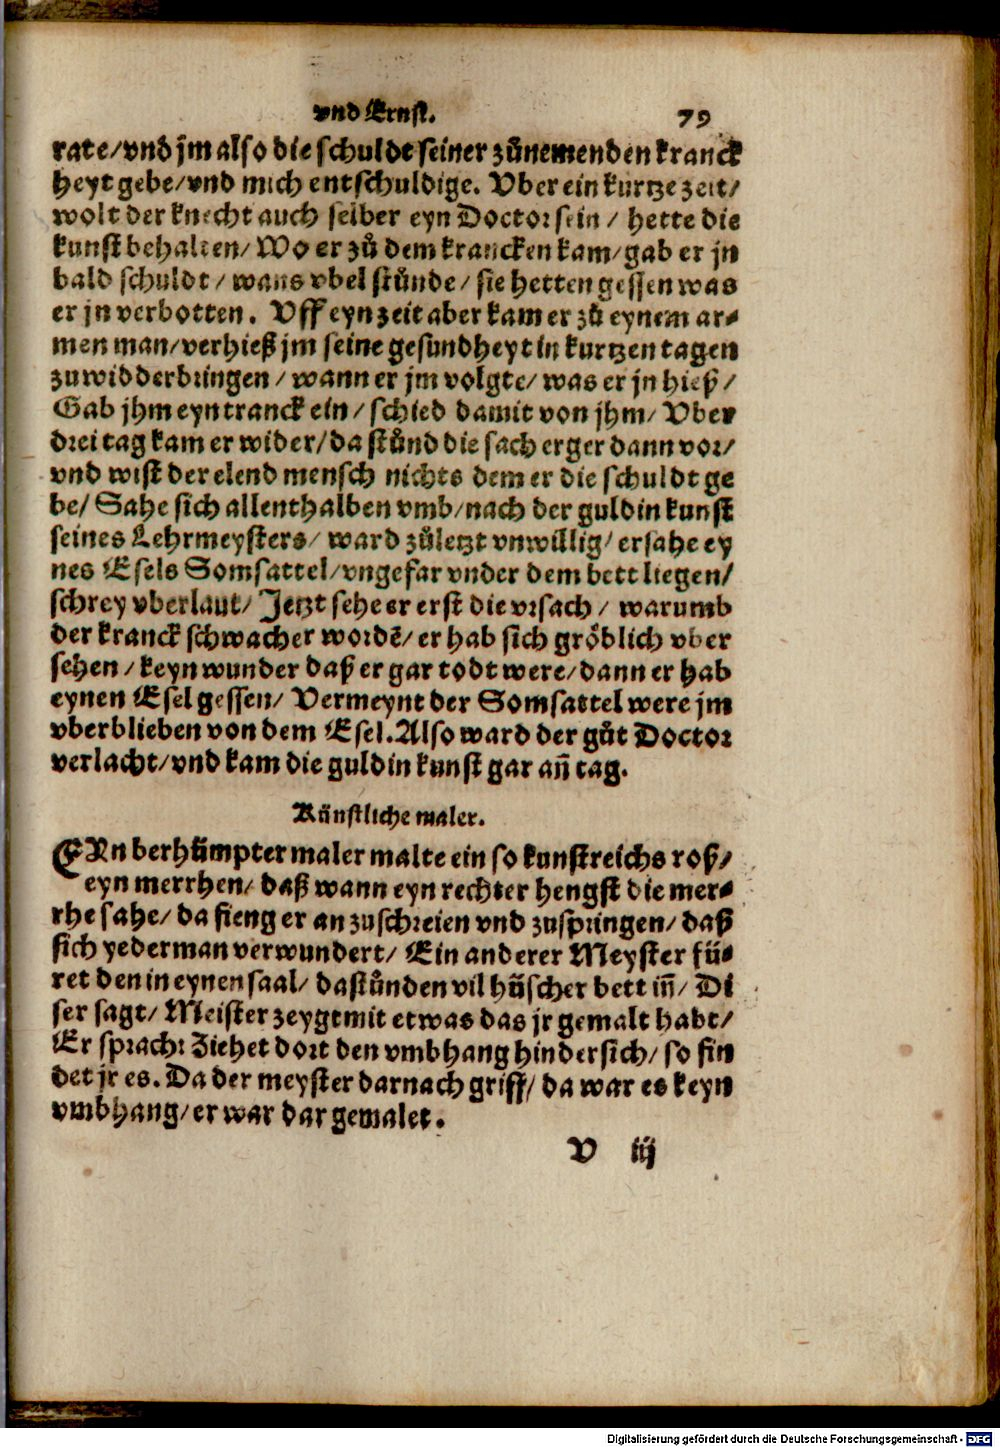 vnd Ernst. 79
rate/vnd jm also die schuldt seiner zůnemenden kranck
heyt gebe/vnd mich entschuldige. Vber ein kurtze zeit/
wolt der knecht auch selber eyn Doctor sein / hette die
kunst behalten/ Wo er zů dem krancken kam/gab er jn
bald schuldt / wans vbel stůnde/ sie hetten gessen was
er jn verbotten. Vff eyn zeit aber kam er zů eynem ar⸗
men man/verhieß jm seine gesundheyt in kurtzen tagen
zuwidderbringen / wann er jm volgte/ was er jn hieß /
Gab jhm eyn tranck ein / schied damit von jhm/ Vber
drei tag kam er wider/da stůnd die sach erger dann vor/
vnd wist der elend mensch nichts dem er die schuldt ge
be/ Sahe sich allenthalben vmb/nach der guldin kunst
seines Lehrmeysters/ ward zůletzt vnwillig/ ersahe ey
nes Esels Somsattel/vngefar vnder dem bett liegen/
schrey vberlaut/ Jetzt sehe er erst die vrsach / warumb
der kranck schwacher wordẽ/ er hab sich gröblich vber
sehen / keyn wunder daß er gar todt were/dann er hab
eynen Esel gessen/ Vermeynt der Somsattel were jm
vberblieben von dem Esel. Also ward der gůt Doctor
verlacht/vnd kam die guldin kunst gar añ tag.
Künstliche maler.
EYn berhümpter maler malte ein so kunstreichs roß/
eyn merrhen/ daß wann eyn rechter hengst die mer⸗
rhe sahe/ da fieng er an zuschreien vnd zuspringen/ daß
sich yederman verwundert/ Ein anderer Meyster fü⸗
ret den in eynen saal/ da stůnden vil hüscher bett iñ/ Di
ser sagt/ Meister zeygt mit etwas das jr gemalt habt/
Er sprach: Ziehet dort den vmbhang hindersich/ so fin
det jr es. Da der meyster darnach griff/ da war es keyn
vmbhang/ er war dar gemalet.
V iij
Digitalisierung gefördert durch die Deutsche Forschungsgemeinschaft - DFG